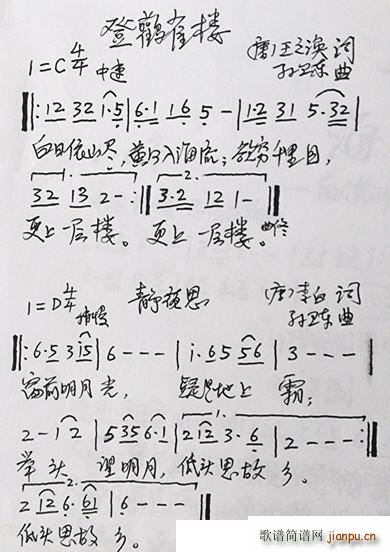 登鹳雀楼
1=C 4/4 中速 (唐)王之涣 词
孙卫东 曲
‖: 12 32 1·5 | 6·1 16 5 - | 1·2 31 5·32 |
白日依山尽,黄河入海流;欲穷千里目,
1. 32 13 2 - :‖ 2. 3·2 12 1 - ‖
更上一层楼。更上一层楼。曲终
1=D 4/4 稍慢 静夜思 (唐)李白 词
孙卫东 曲
‖: 6·5 3 i5 | 6 - - - | i·65 56 | 3 - - - |
窗前明月光, 疑是地上 霜;
2 - 1 2 | 5 35 6·1 | 1. 2 12 3·6 | 2 - - - :‖
举头 望明月,低头思故 乡。
2. 2 12 6·61 | 6 - - - ‖
低头思故 乡。
歌谱简谱网
www.jianpu.cn